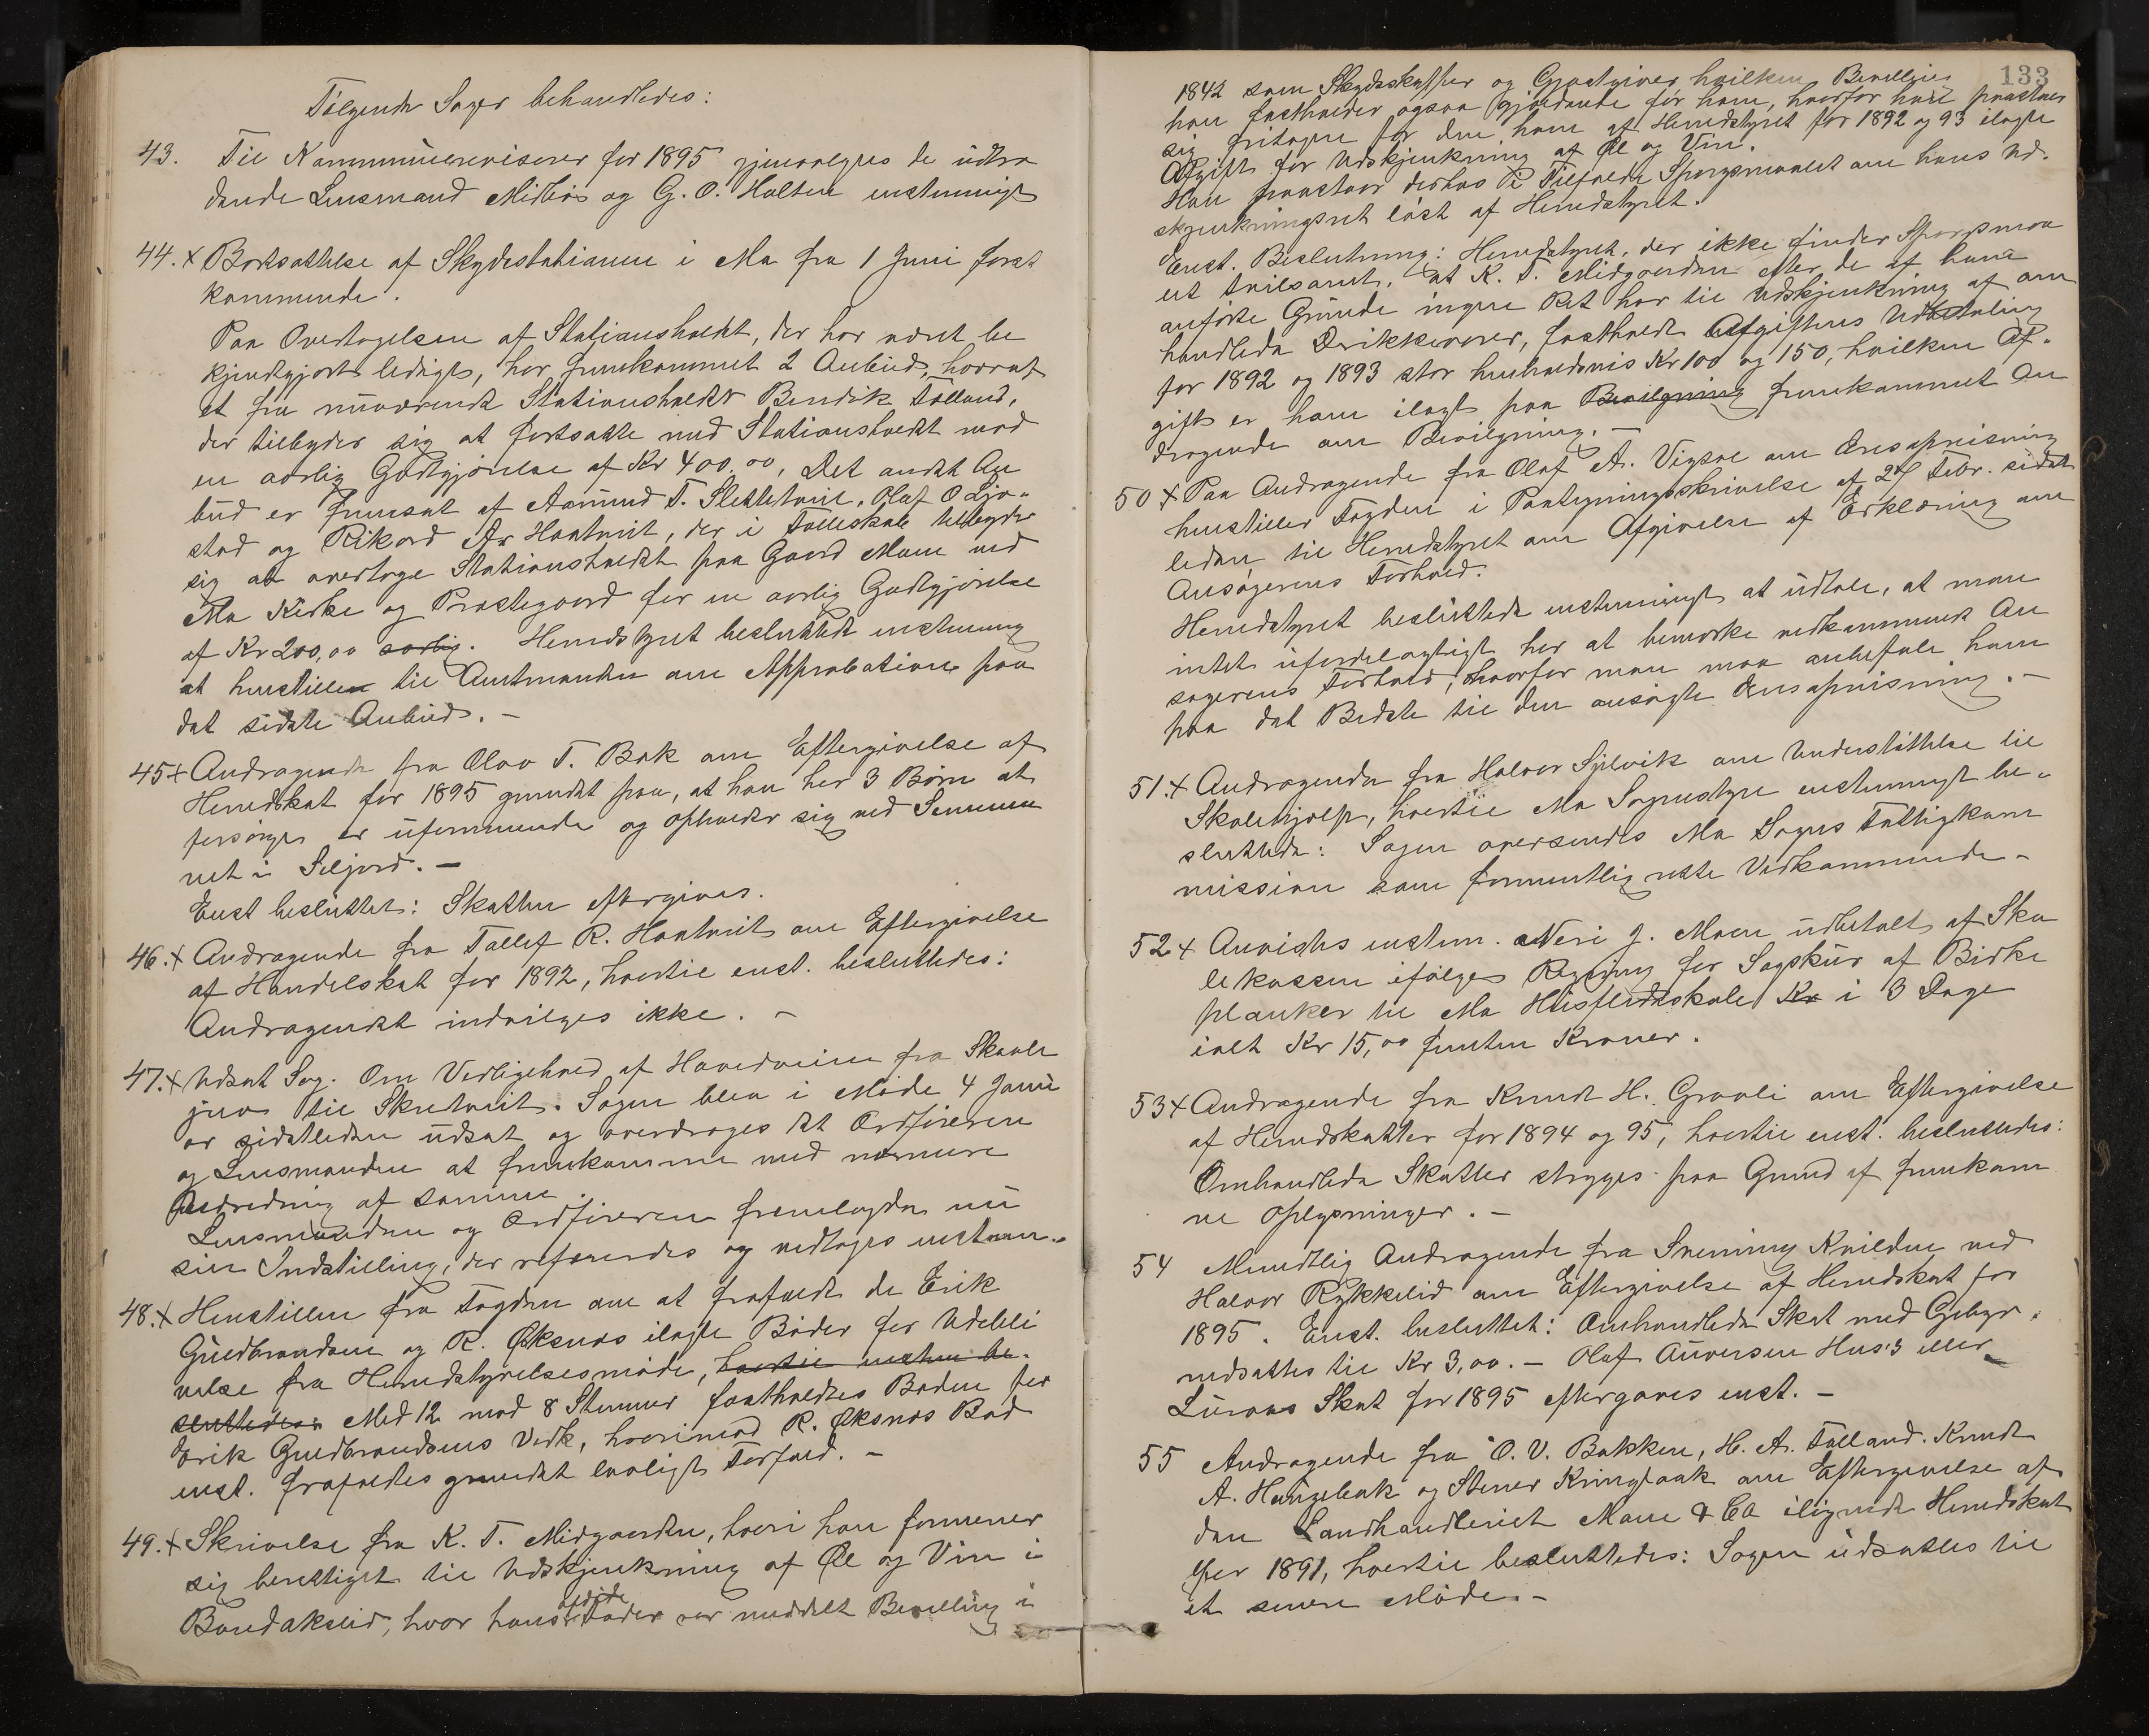 Følgende Sager behandledes:
43. Til Kommunerevisorer for 1895 gjenvalgtes de udtræ
dende Lensmand Midbøe og G. O. Holten enstemmigt
44. x Bortsættelse af Skydsstationen i Mo fra 1 Juni først
kommende.
Paa Overtagelsen af Stationsholdet, der har været be
kjendtgjort ledigt, har fremkommet 2 Anbud, hvoraf
et fra nuværende Stationsholder Bendik Felland,
der tilbyder sig at fortsætte med Stationsholdet mod
en aarlig Godtgjørelse af Kr 400.00, Det andet An
bud er fremsat af Aamund T. Slettetveit, Olaf O Ljo-
stad og Rikard A. Haatveit, der i Fælleskab tilbyder
sig at overtage Stationsholdet paa Gaard Moen ved
Mo Kirke og Præstegaard for en aarlig Godtgjørelse
af Kr 200,00 aarlig. Herredstyret besluttede enstemmig
at henstille til Amtmanden om Approbation paa
det sidste Anbud. –
45 x Andragende fra Olav T. Bøk om Eftergivelse af
Herredskat for 1895 grundet paa, at han har 3 Børn at
forsørge er uformuende og opholder sig ved Semina
ret i Seljord. –
Enst besluttet: Skatten eftergives.
46. x Andragende fra Tallef R. Haatveit om Eftergivelse
af Handelskat for 1892, hvortil enst. besluttedes:
Andragendet indvilges ikke. –
47. x Udsat Sag. Om Vedligehold af Hovedveien fra Skaale
juv til Skretveit. Sagen blev i Møde 4 Janu
ar sidstleden udsat og overdroges det Ordføreren
og Lensmanden at fremkomme med nærmere
Udredning af samme.
Lensmanden og Ordføreren fremlagde nu
sin Indstilling, der refereredes og vedtoges enstem.
48. x Henstillen fra Fogden om at frafalde de Erik
Gudbrandsen og R. Øksnæs ilagte Bøder for Udebli
velse fra Herredstyrelsesmøde, hvortil enstem be-
sluttedes: Med 12 mod 8 Stemmer fastholdtes Boden for
Erik Gudbrandsens Vedk, hvorimod R. Øksnæs Bod
enst. frafaldtes grundet lovligt Forfald. –
49. x Skrivelse fra K. T. Midgaarden, hvori han formener
sig berettiget til Udskjenkning af Øl og Vin i
Bandakslid, hvor hans afdøde Fader var meddelt Bevilling i
133
1842 som Skydsskaffer og Gjæstgiver hvilken Bevilling
han fastholder ogsaa gjældende for ham, hvorfor han paastaar
sig fritagen for den ham af Herredstyret for 1892 og 93 ilagte
Afgift for Udskjenkning af Øl og Vin.
Han paastaar derhos i Tilfælde Spørgsmaalet om hans Ud-
skjenkningsret løst af Herredstyret.
Enst. Beslutning: Herredstyret, der ikke finder Spørgsmaa
let tvilsomt, at K. T. Midgaarden efter de af ham
anførte Grunde ingen Ret har til Udskjenkning af om
handlede Drikkevarer, fastholdt Afgiftens Udbetaling
for 1892 og 1893 stor henholdsvis Kr 100 og 150, hvilken Af-
gift er ham ilagt paa Bevilgning fremkommet An
dragende om Bevilgning. –
50 x Paa Andragende fra Olaf A. Vigsae om Æresopreisning
henstiller Fogden i Paategningsskrivelse af 27 Febr. sidst
leden til Herredstyret om Afgivelse af Erklæring om
Ansøgerens Forhold.
Herredstyret besluttede enstemmigt at udtale, at man
intet ufordelagtigt har at bemærke vedkommende An
søgerens Forhold, hvorfor man maa anbefale ham
paa det Bedste til den ansøgte Æresopreisning. –
51. x Andragende fra Halvor Sjelvik om Understøttelse til
Skolehjælp, hvortil Mo Sognestyre enstemmigt be-
sluttede: Sagen oversendes Mo Sogns Fattigkom
mission som formentlig rette Vedkommende –
52 x Anvistes enstem. Neri J. Moen udbetalt af Sko
lekassen ifølge Regning for Sagskur af Birke
planker til Mo Husflidsskole Kr i 3 Dage
ialt Kr 15,00 femten Kroner.
53 x Andragende fra Knud H. Graali om Eftergivelse
af Herredskatter for 1894 og 95, hvortil enst. besluttedes:
Omhandlede Skatter stryges paa Grund af fremkom
ne Oplysninger. –
54 Mundtlig Andragende fra Svening Kvilden ved
Halvor Rykkelid om Eftergivelse af Herredskat for
1895. Enst. besluttet: Omhandlede Skat med Gebyr
nedsattes til Kr 3,00. – Olaf Auversen Hus's eller
Luraas Skat for 1895 eftergaves enst. –
55 Andragende fra O. V. Bakken, H. A. Felland. Knud
A. Haugebak og Stener Kringlaak om Eftergivelse af
den Landhandleriet Moen & Co ilignede Herredskat
for 1891, hvortil besluttedes: Sagen udsattes til
et senere Møde. –